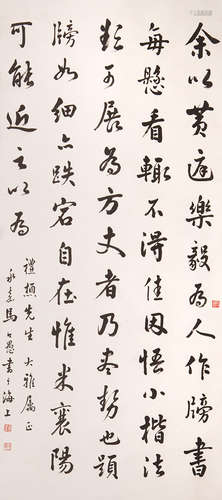 余以黄庭樂毅為人作牓書
每懸看輒不得佳因悟小楷法
欵可展為方丈者乃盡勢也題
牓如細亦跌宕自在惟米襄陽
可能近之以為
禮頫先生大雅屬正
永嘉馬公愚書於海上